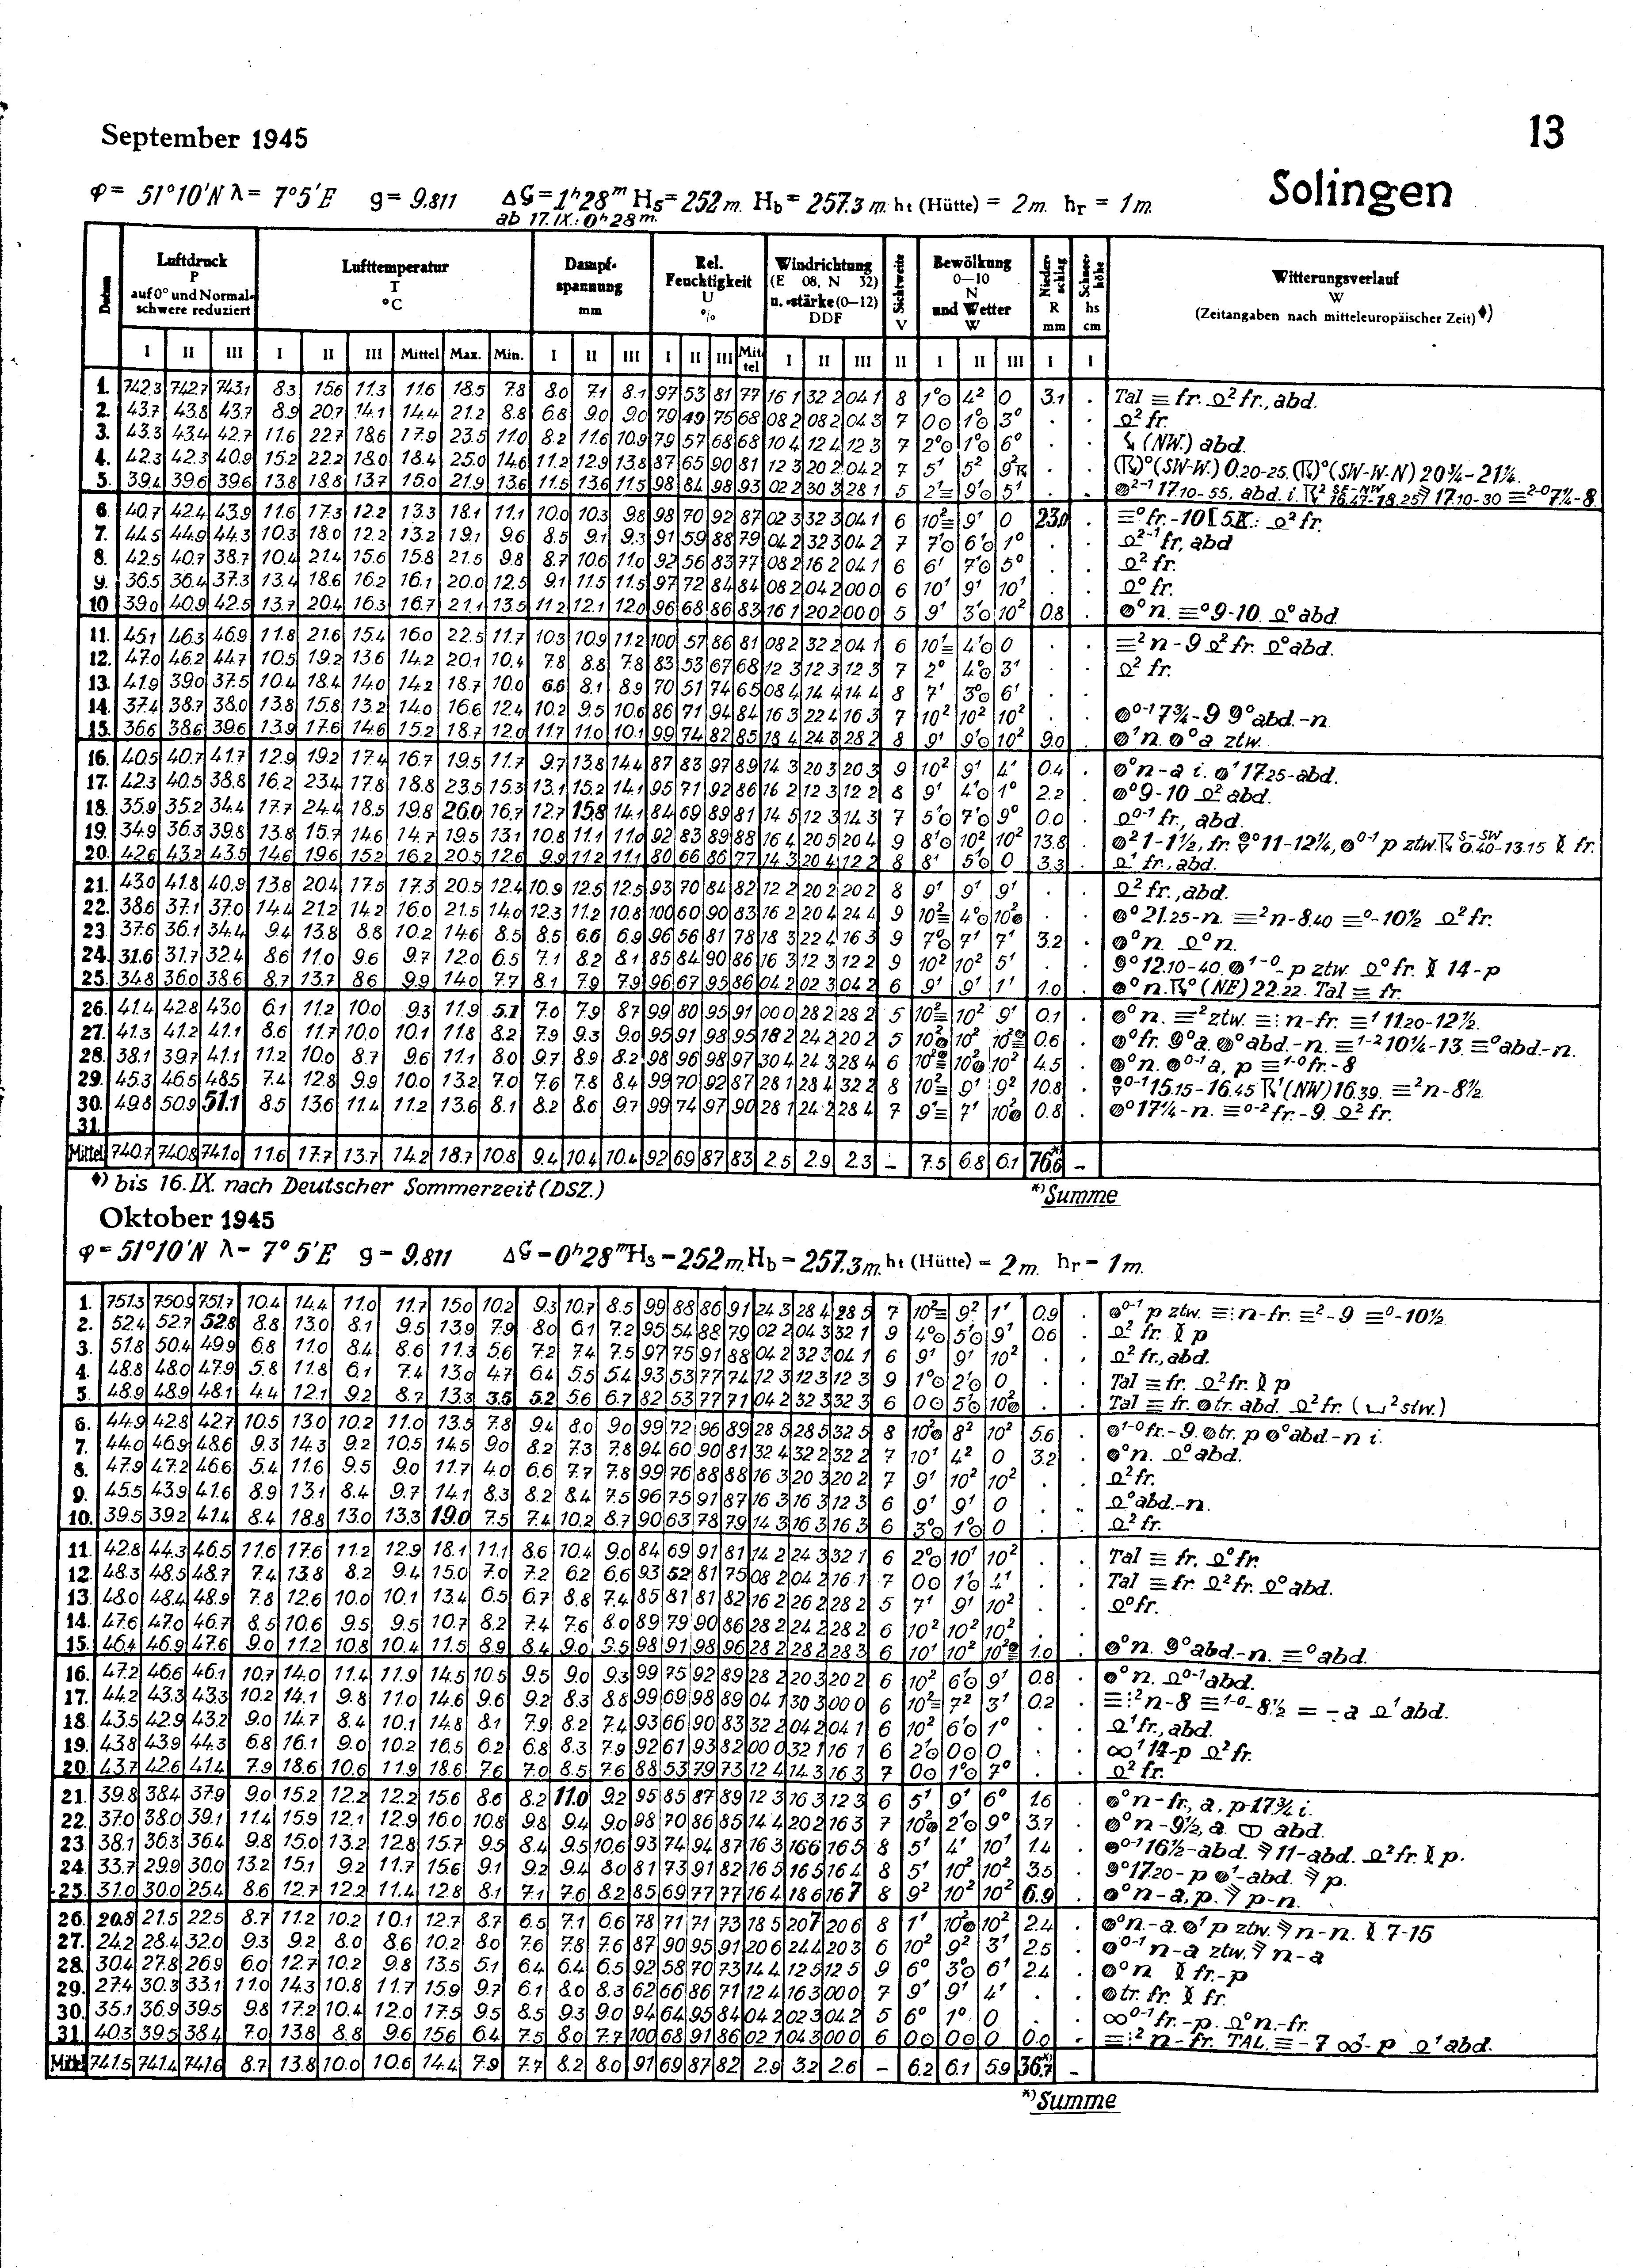 September 1945
13
φ = 51°10'N λ = 7°5'E g = 9,811 ΔG = 1ʰ28ᵐ Hs = 252 m. Hb = 257.3 m. ht (Hütte) = 2 m. hr = 1 m.
ab 17.IX.: 0ʰ28ᵐ.
Solingen
Datum
Luftdruck P auf 0° und Normalschwere reduziert
Lufttemperatur T °C
Dampfspannung mm
Rel. Feuchtigkeit U %
Windrichtung (E 08, N 32) u. -stärke (0—12) DDF
Sichtweite V
Bewölkung 0—10 N und Wetter W
Niederschlag R mm
Schneehöhe hs cm
Witterungsverlauf W (Zeitangaben nach mitteleuropäischer Zeit) ♦)
I II III I II III Mittel Max. Min. I II III I II III Mittel I II III II I II III I I
1. 742.3 742.7 743.1 8.3 15.6 11.3 11.6 18.5 7.8 8.0 7.1 8.1 97 53 81 77 16 1 32 2 04 1 8 1°⊙ 4² 0 3.1 . Tal ≡ fr. Ω² fr., abd.
2. 43.7 43.8 43.7 8.9 20.7 14.1 14.4 21.2 8.8 6.8 9.0 9.0 79 49 75 68 08 2 08 2 04 3 7 0⊙ 1°⊙ 3° . . Ω² fr.
3. 43.3 43.4 42.7 11.6 22.7 18.6 17.9 23.5 11.0 8.2 11.6 10.9 79 57 68 68 10 4 12 4 12 3 7 2°⊙ 1°⊙ 6° . . (NW.) abd.
4. 42.3 42.3 40.9 15.2 22.2 18.0 18.4 25.0 14.6 11.2 12.9 13.8 87 65 90 81 12 3 20 2 04 2 7 5¹ 5² 9² . . (☈)° (SW-W.) 0.20-25. (☈)° (SW-W-N) 20¾-21¼.
5. 39.4 39.6 39.6 13.8 18.8 13.7 15.0 21.9 13.6 11.5 13.6 11.5 98 84 98 93 02 2 30 3 28 1 5 2¹≡ 9¹⊙ 5¹ . . ●²⁻¹ 17.10-55. abd. i. ☈² SE-NW 16.47-18.25 17.10-30 ≡²⁻⁰ 7¼-8
6. 40.7 42.4 43.9 11.6 17.3 12.2 13.3 18.1 11.1 10.0 10.3 9.8 98 70 92 87 02 3 32 3 04 1 6 10²≡ 9¹ 0 23.0 . ≡° fr.-10 [5.IX.: Ω² fr.
7. 44.5 44.9 44.3 10.3 18.0 12.2 13.2 19.1 9.6 8.5 9.1 9.3 91 59 88 79 04 2 32 3 04 2 7 7¹⊙ 6¹⊙ 1° . . Ω²⁻¹ fr, abd
8. 42.5 40.7 38.7 10.4 21.4 15.6 15.8 21.5 9.8 8.7 10.6 11.0 92 56 83 77 08 2 16 2 04 1 6 6¹ 7¹⊙ 5° . . Ω² fr.
9. 36.5 36.4 37.3 13.4 18.6 16.2 16.1 20.0 12.5 9.1 11.5 11.5 97 72 84 84 08 2 04 2 00 0 6 10¹ 9¹ 10¹ . . Ω° fr.
10 39.0 40.9 42.5 13.7 20.4 16.3 16.7 21.1 13.5 11.2 12.1 12.0 96 68 86 83 16 1 20 2 00 0 5 9¹ 3¹⊙ 10² 0.8 . ●° n. ≡° 9-10. Ω° abd.
11. 45.1 46.3 46.9 11.8 21.6 15.4 16.0 22.5 11.7 10.3 10.9 11.2 100 57 86 81 08 2 32 2 04 1 6 10¹≡ 4¹⊙ 0 . . ≡² n-9 Ω² fr. Ω° abd.
12. 47.0 46.2 44.7 10.5 19.2 13.6 14.2 20.1 10.4 7.8 8.8 7.8 83 53 67 68 12 3 12 3 12 3 7 2° 4°⊙ 3¹ . . Ω² fr.
13. 41.9 39.0 37.5 10.4 18.4 14.0 14.2 18.7 10.0 6.6 8.1 8.9 70 51 74 65 08 4 14 4 14 4 8 7¹ 3°⊙ 6¹ . .
14. 37.4 38.7 38.0 13.8 15.8 13.2 14.0 16.6 12.4 10.2 9.5 10.6 86 71 94 84 16 3 22 4 16 3 7 10² 10² 10² . . ●⁰⁻¹ 7¾-9 9° abd.-n.
15. 36.6 38.6 39.6 13.9 17.6 14.6 15.2 18.7 12.0 11.7 11.0 10.1 99 74 82 85 18 4 24 3 28 2 8 9¹ 9¹⊙ 10² 9.0 . ●¹ n. ●° a ztw.
16. 40.5 40.7 41.7 12.9 19.2 17.4 16.7 19.5 11.7 9.7 13.8 14.4 87 83 97 89 14 3 20 3 20 3 9 10² 9¹ 4¹ 0.4 . ●° n-a i. ●¹ 17.25-abd.
17. 42.3 40.5 38.8 16.2 23.4 17.8 18.8 23.5 15.3 13.1 15.2 14.1 95 71 92 86 16 2 12 3 12 2 8 9¹ 4¹⊙ 1° 2.2 . ●° 9-10 Ω² abd.
18. 35.9 35.2 34.4 17.7 24.4 18.5 19.8 26.0 16.7 12.7 15.8 14.1 84 69 89 81 14 5 12 3 14 3 7 5¹⊙ 7¹⊙ 9° 0.0 . Ω⁰⁻¹ fr., abd.
19. 34.9 36.3 39.8 13.8 15.7 14.6 14.7 19.5 13.1 10.8 11.1 11.0 92 83 89 88 16 4 20 5 20 4 9 8¹⊙ 10² 10² 13.8 . ●² 1-1½, fr. 11-12¼, ●⁰⁻¹ p ztw. ☈ S-SW 0.40-13.15 fr.
20. 42.6 43.2 43.5 14.6 19.6 15.2 16.2 20.5 12.6 9.9 11.2 11.1 80 66 86 77 14 3 20 4 12 2 8 8¹ 5¹⊙ 0 3.3 . Ω¹ fr., abd.
21. 43.0 41.8 40.9 13.8 20.4 17.5 17.3 20.5 12.4 10.9 12.5 12.5 93 70 84 82 12 2 20 2 20 2 8 9¹ 9¹ 9¹ . . Ω² fr., abd.
22. 38.6 37.1 37.0 14.4 21.2 14.2 16.0 21.5 14.0 12.3 11.2 10.8 100 60 90 83 16 2 20 4 24 4 9 10²≡ 4°⊙ 10²● . . ●° 21.25-n. ≡² n-8.40 ≡°-10½ Ω² fr.
23. 37.6 36.1 34.4 9.4 13.8 8.8 10.2 14.6 8.5 8.5 6.6 6.9 96 56 81 78 18 3 22 4 16 3 9 7°⊙ 7¹ 7¹ 3.2 . ●° n. Ω° n.
24. 31.6 31.7 32.4 8.6 11.0 9.6 9.7 12.0 6.5 7.1 8.2 8.1 85 84 90 86 16 3 12 3 12 2 9 10² 10² 5¹ . . 9° 12.10-40. ●¹⁻⁰-p ztw. Ω° fr. 14-p
25. 34.8 36.0 38.6 8.7 13.7 8.6 9.9 14.0 7.7 8.1 7.9 7.9 96 67 95 86 04 2 02 3 04 2 6 9¹ 9¹ 1¹ 1.0 . ●° n. ☈° (NE) 22.22. Tal ≡ fr.
26. 41.4 42.8 43.0 6.1 11.2 10.0 9.3 11.9 5.1 7.0 7.9 8.7 99 80 95 91 00 0 28 2 28 2 5 10²≡ 10² 9¹ 0.1 . ●° n. ≡² ztw. ≡: n-fr. ≡¹ 11.20-12½.
27. 41.3 41.2 41.1 8.6 11.7 10.0 10.1 11.8 8.2 7.9 9.3 9.0 95 91 98 95 18 2 24 2 20 2 5 10²● 10² 10² 0.6 . ●° fr. 9° a. ●° abd.-n. ≡¹⁻² 10¼-13. ≡° abd.-n.
28. 38.1 39.7 41.1 11.2 10.0 8.7 9.6 11.1 8.0 9.7 8.9 8.2 98 96 98 97 30 4 24 3 28 4 6 10² 10²● 10² 4.5 . ●° n. ●⁰⁻¹ a, p ≡¹⁻⁰ fr.-8
29. 45.3 46.5 48.5 7.4 12.8 9.9 10.0 13.2 7.0 7.6 7.8 8.4 99 70 92 87 28 1 28 4 32 2 8 10²≡ 9¹ 9² 10.8 . ⁰⁻¹ 15.15-16.45 ☈¹ (NW) 16.39. ≡² n-8½.
30. 49.8 50.9 51.1 8.5 13.6 11.4 11.2 13.6 8.1 8.2 8.6 9.7 99 74 97 90 28 1 24 2 28 4 7 9¹≡ 7¹ 10²● 0.8 . ●° 17¼-n. ≡⁰⁻² fr.-9. Ω² fr.
31.
Mittel 740.7 740.8 741.0 11.6 17.7 13.7 14.2 18.7 10.8 9.4 10.4 10.4 92 69 87 83 2.5 2.9 2.3 – 7.5 6.8 6.1 76.6 *) –
♦) bis 16. IX. nach Deutscher Sommerzeit (DSZ.)
*) Summe
Oktober 1945
φ = 51°10'N λ = 7°5'E g = 9,811 ΔG = 0ʰ28ᵐ Hs = 252 m. Hb = 257.3 m. ht (Hütte) = 2 m. hr = 1 m.
1. 751.3 750.9 751.7 10.4 14.4 11.0 11.7 15.0 10.2 9.3 10.7 8.5 99 88 86 91 24 3 28 4 28 5 7 10²≡ 9² 1¹ 0.9 . ●⁰⁻¹ p ztw. ≡: n-fr. ≡²-9 ≡°-10½
2. 52.4 52.7 52.8 8.8 13.0 8.1 9.5 13.9 7.9 8.0 6.1 7.2 95 54 88 79 02 2 04 3 32 1 9 4°⊙ 5¹⊙ 9¹ 0.6 . Ω² fr. p
3. 51.8 50.4 49.9 6.8 11.0 8.4 8.6 11.3 5.6 7.2 7.4 7.5 97 75 91 88 04 2 32 3 04 1 6 9¹ 9¹ 10² . . Ω² fr., abd.
4. 48.8 48.0 47.9 5.8 11.8 6.1 7.4 13.0 4.7 6.4 5.5 5.4 93 53 77 74 12 3 12 3 12 3 9 1°⊙ 2¹⊙ 0 . . Tal ≡ fr. Ω² fr. p
5. 48.9 48.9 48.1 4.4 12.1 9.2 8.7 13.3 3.5 5.2 5.6 6.7 82 53 77 71 04 2 32 3 32 3 6 0⊙ 5¹⊙ 10²● . . Tal ≡ fr. ●tr. abd. Ω² fr. (⊔² stw.)
6. 44.9 42.8 42.7 10.5 13.0 10.2 11.0 13.5 7.8 9.4 8.0 9.0 99 72 96 89 28 5 28 5 32 5 8 10²● 8² 10² 5.6 . ●¹⁻⁰ fr.-9. ●tr. p ●° abd.-n i.
7. 44.0 46.9 48.6 9.3 14.3 9.2 10.5 14.5 9.0 8.2 7.3 7.8 94 60 90 81 32 4 32 2 32 2 7 10¹ 4² 0 3.2 . ●° n. Ω° abd.
8. 47.9 47.2 46.6 5.4 11.6 9.5 9.0 11.7 4.0 6.6 7.7 7.8 99 76 88 88 16 3 20 3 20 2 7 9¹ 10² 10² . . Ω² fr.
9. 45.5 43.9 41.6 8.9 13.1 8.4 9.7 14.1 8.3 8.2 8.4 7.5 96 75 91 87 16 3 16 3 12 3 6 9¹ 9¹ 0 . . Ω° abd.-n.
10. 39.5 39.2 41.4 8.4 18.8 13.0 13.3 19.0 7.5 7.4 10.2 8.7 90 63 78 79 14 3 16 3 16 3 6 3°⊙ 1°⊙ 0 . . Ω² fr.
11. 42.8 44.3 46.5 11.6 17.6 11.2 12.9 18.1 11.1 8.6 10.4 9.0 84 69 91 81 14 2 24 3 32 1 6 2°⊙ 10¹ 10² . . Tal ≡ fr. Ω° fr.
12. 48.3 48.5 48.7 7.4 13.8 8.2 9.4 15.0 7.0 7.2 6.2 6.6 93 52 81 75 08 2 04 2 16 1 7 0⊙ 1¹⊙ 4¹ . . Tal ≡ fr Ω² fr. Ω° abd.
13. 48.0 48.4 48.9 7.8 12.6 10.0 10.1 13.4 6.5 6.7 8.8 7.4 85 81 81 82 16 2 26 2 28 2 5 7¹ 9¹ 10² . . Ω° fr.
14. 47.6 47.0 46.7 8.5 10.6 9.5 9.5 10.7 8.2 7.4 7.6 8.0 89 79 90 86 28 2 24 2 28 2 6 10² 10² 10² . .
15. 46.4 46.9 47.6 9.0 11.2 10.8 10.4 11.5 8.9 8.4 9.0 9.5 98 91 98 96 28 2 28 2 28 3 6 10¹ 10² 10² 1.0 . ●° n. 9° abd.-n. ≡° abd.
16. 47.2 46.6 46.1 10.7 14.0 11.4 11.9 14.5 10.5 9.5 9.0 9.3 99 75 92 89 28 2 20 3 20 2 6 10² 6¹⊙ 9¹ 0.8 . ●° n. Ω⁰⁻¹ abd.
17. 44.2 43.3 43.3 10.2 14.1 9.8 11.0 14.6 9.6 9.2 8.3 8.8 99 69 98 89 04 1 30 3 00 0 6 10²≡ 7² 3¹ 0.2 . ≡:² n-8 ≡¹⁻⁰-8½ = -a Ω¹ abd.
18. 43.5 42.9 43.2 9.0 14.7 8.4 10.1 14.8 8.1 7.9 8.2 7.4 93 66 90 83 32 2 04 2 04 1 6 10² 6¹⊙ 1° . . Ω¹ fr., abd.
19. 43.8 43.9 44.3 6.8 16.1 9.0 10.2 16.5 6.2 6.8 8.3 7.9 92 61 93 82 00 0 32 1 16 1 6 2¹⊙ 0⊙ 0 . . ∞¹ 14-p Ω² fr.
20. 43.7 42.6 41.4 7.9 18.6 10.6 11.9 18.6 7.6 7.0 8.5 7.6 88 53 79 73 12 4 14 3 16 3 7 0⊙ 1°⊙ 7° . . Ω² fr.
21. 39.8 38.4 37.9 9.0 15.2 12.2 12.2 15.6 8.6 8.2 11.0 9.2 95 85 87 89 12 3 16 3 12 3 6 5¹ 9¹ 6° 1.6 . ●° n-fr., a, p-17¾ i.
22. 37.0 38.0 39.1 11.4 15.9 12.1 12.9 16.0 10.8 9.8 9.4 9.0 98 70 86 85 14 4 20 2 16 3 7 10²● 2¹⊙ 9° 3.7 . ●° n-9½, a. abd.
23. 38.1 36.3 36.4 9.8 15.0 13.2 12.8 15.7 9.5 8.4 9.5 10.6 93 74 94 87 16 3 16 6 16 5 8 5¹ 4¹ 10¹ 1.4 . ●⁰⁻¹ 16½-abd. 11-abd. Ω² fr. p.
24. 33.7 29.9 30.0 13.2 15.1 9.2 11.7 15.6 9.1 9.2 9.4 8.0 81 73 91 82 16 5 16 5 16 4 8 5¹ 10² 10² 3.5 . 9° 17.20-p ●¹-abd. p.
25. 31.0 30.0 25.4 8.6 12.7 12.2 11.4 12.8 8.1 7.1 7.6 8.2 85 69 77 77 16 4 18 6 16 7 8 9² 10² 10² 6.9 . ●° n-a, p. p-n.
26. 20.8 21.5 22.5 8.7 11.2 10.2 10.1 12.7 8.7 6.5 7.1 6.6 78 71 71 73 18 5 20 7 20 6 8 1¹ 10²● 10² 2.4 . ●° n.-a. ●¹ p ztw. n-n. 7-15
27. 24.2 28.4 32.0 9.3 9.2 8.0 8.6 10.2 8.0 7.6 7.8 7.6 87 90 95 91 20 6 24 4 20 3 6 10² 9² 3¹ 2.5 . ●⁰⁻¹ n-a ztw. n-a
28. 30.4 27.8 26.9 6.0 12.7 10.2 9.8 13.5 5.1 6.4 6.4 6.5 92 58 70 73 14 4 12 5 12 5 9 6° 3°⊙ 6¹ 2.4 . ●° n fr.-p
29. 27.4 30.3 33.1 11.0 14.3 10.8 11.7 15.9 9.7 6.1 8.0 8.3 62 66 86 71 12 4 16 3 00 0 7 9¹ 9¹ 4¹ . . ●tr. fr. fr.
30. 35.1 36.9 39.5 9.8 17.2 10.4 12.0 17.5 9.5 8.5 9.3 9.0 94 64 95 84 04 2 02 3 04 2 5 6° 1° 0 . . ∞⁰⁻¹ fr.-p. Ω° n.-fr.
31. 40.3 39.5 38.4 7.0 13.8 8.8 9.6 15.6 6.4 7.5 8.0 7.7 100 68 91 86 02 1 04 3 00 0 6 0⊙ 0⊙ 0 0.0 - ≡:² n-fr. TAL. ≡ -7 ∞¹-p Ω¹ abd.
Mittel 741.5 741.4 741.6 8.7 13.8 10.0 10.6 14.4 7.9 7.7 8.2 8.0 91 69 87 82 2.9 3.2 2.6 – 6.2 6.1 5.9 36.7 *) –
*) Summe